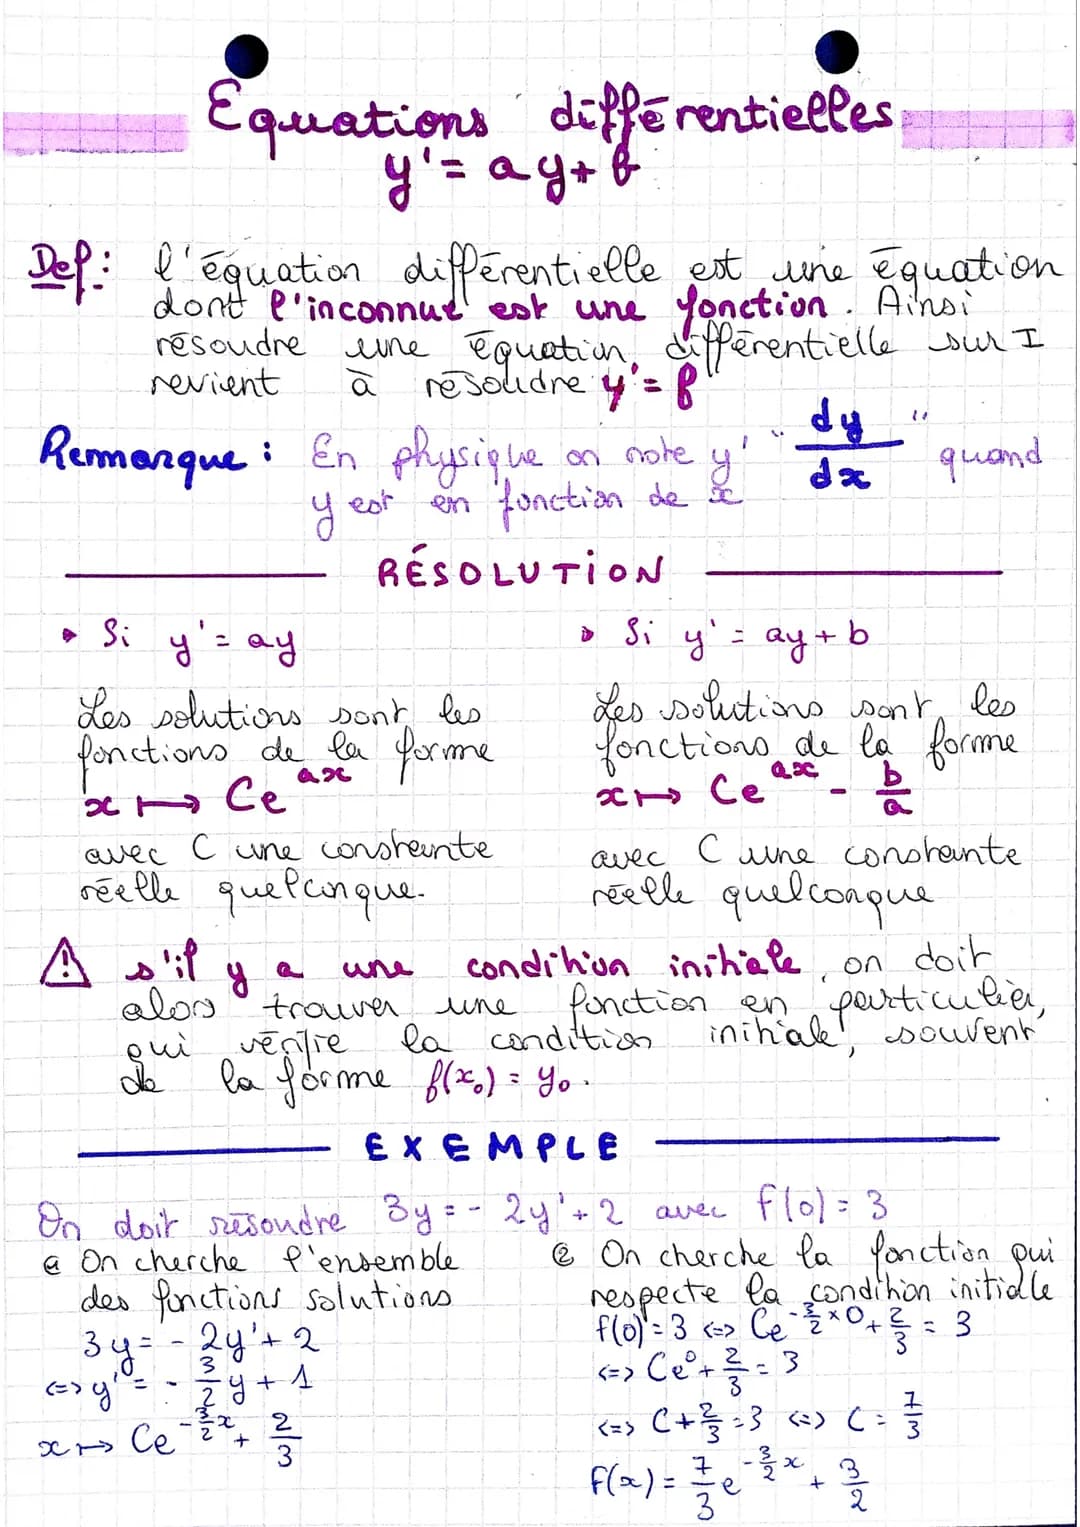 Equations différentielles
y' = ay + b
Def : l'équation différentielle est une équation
dont l'inconnue est une fonction. Ainsi
résoudre une équation différentielle sur I
revient à résoudre y' = f
Remarque : En physique on note y' " dy/dx " quand
y est en fonction de x
RÉSOLUTION
• Si y' = ay
Les solutions sont les
fonctions de la forme
x ↦ Ce^{ax}
avec C une constante
réelle quelconque.
• Si y' = ay + b
Les solutions sont les
fonctions de la forme
x ↦ Ce^{ax} - b/a
avec C une constante
réelle quelconque
⚠ s'il y a une condition initiale, on doit
alors trouver une fonction en particulier,
qui vérifie la condition initiale, souvent
de la forme f(x₀) = y₀.
EXEMPLE
On doit résoudre 3y = - 2y' + 2 avec f(0) = 3
① On cherche l'ensemble
des fonctions solutions
3y = - 2y' + 2
<=> y' = - 3/2 y + 1
x ↦ Ce^{-3/2 x} + 2/3
② On cherche la fonction qui
respecte la condition initiale
f(0) = 3 <=> Ce^{-3/2 × 0} + 2/3 = 3
<=> Ce⁰ + 2/3 = 3
<=> C + 2/3 = 3 <=> C = 7/3
f(x) = 7/3 e^{-3/2 x} + 3/2